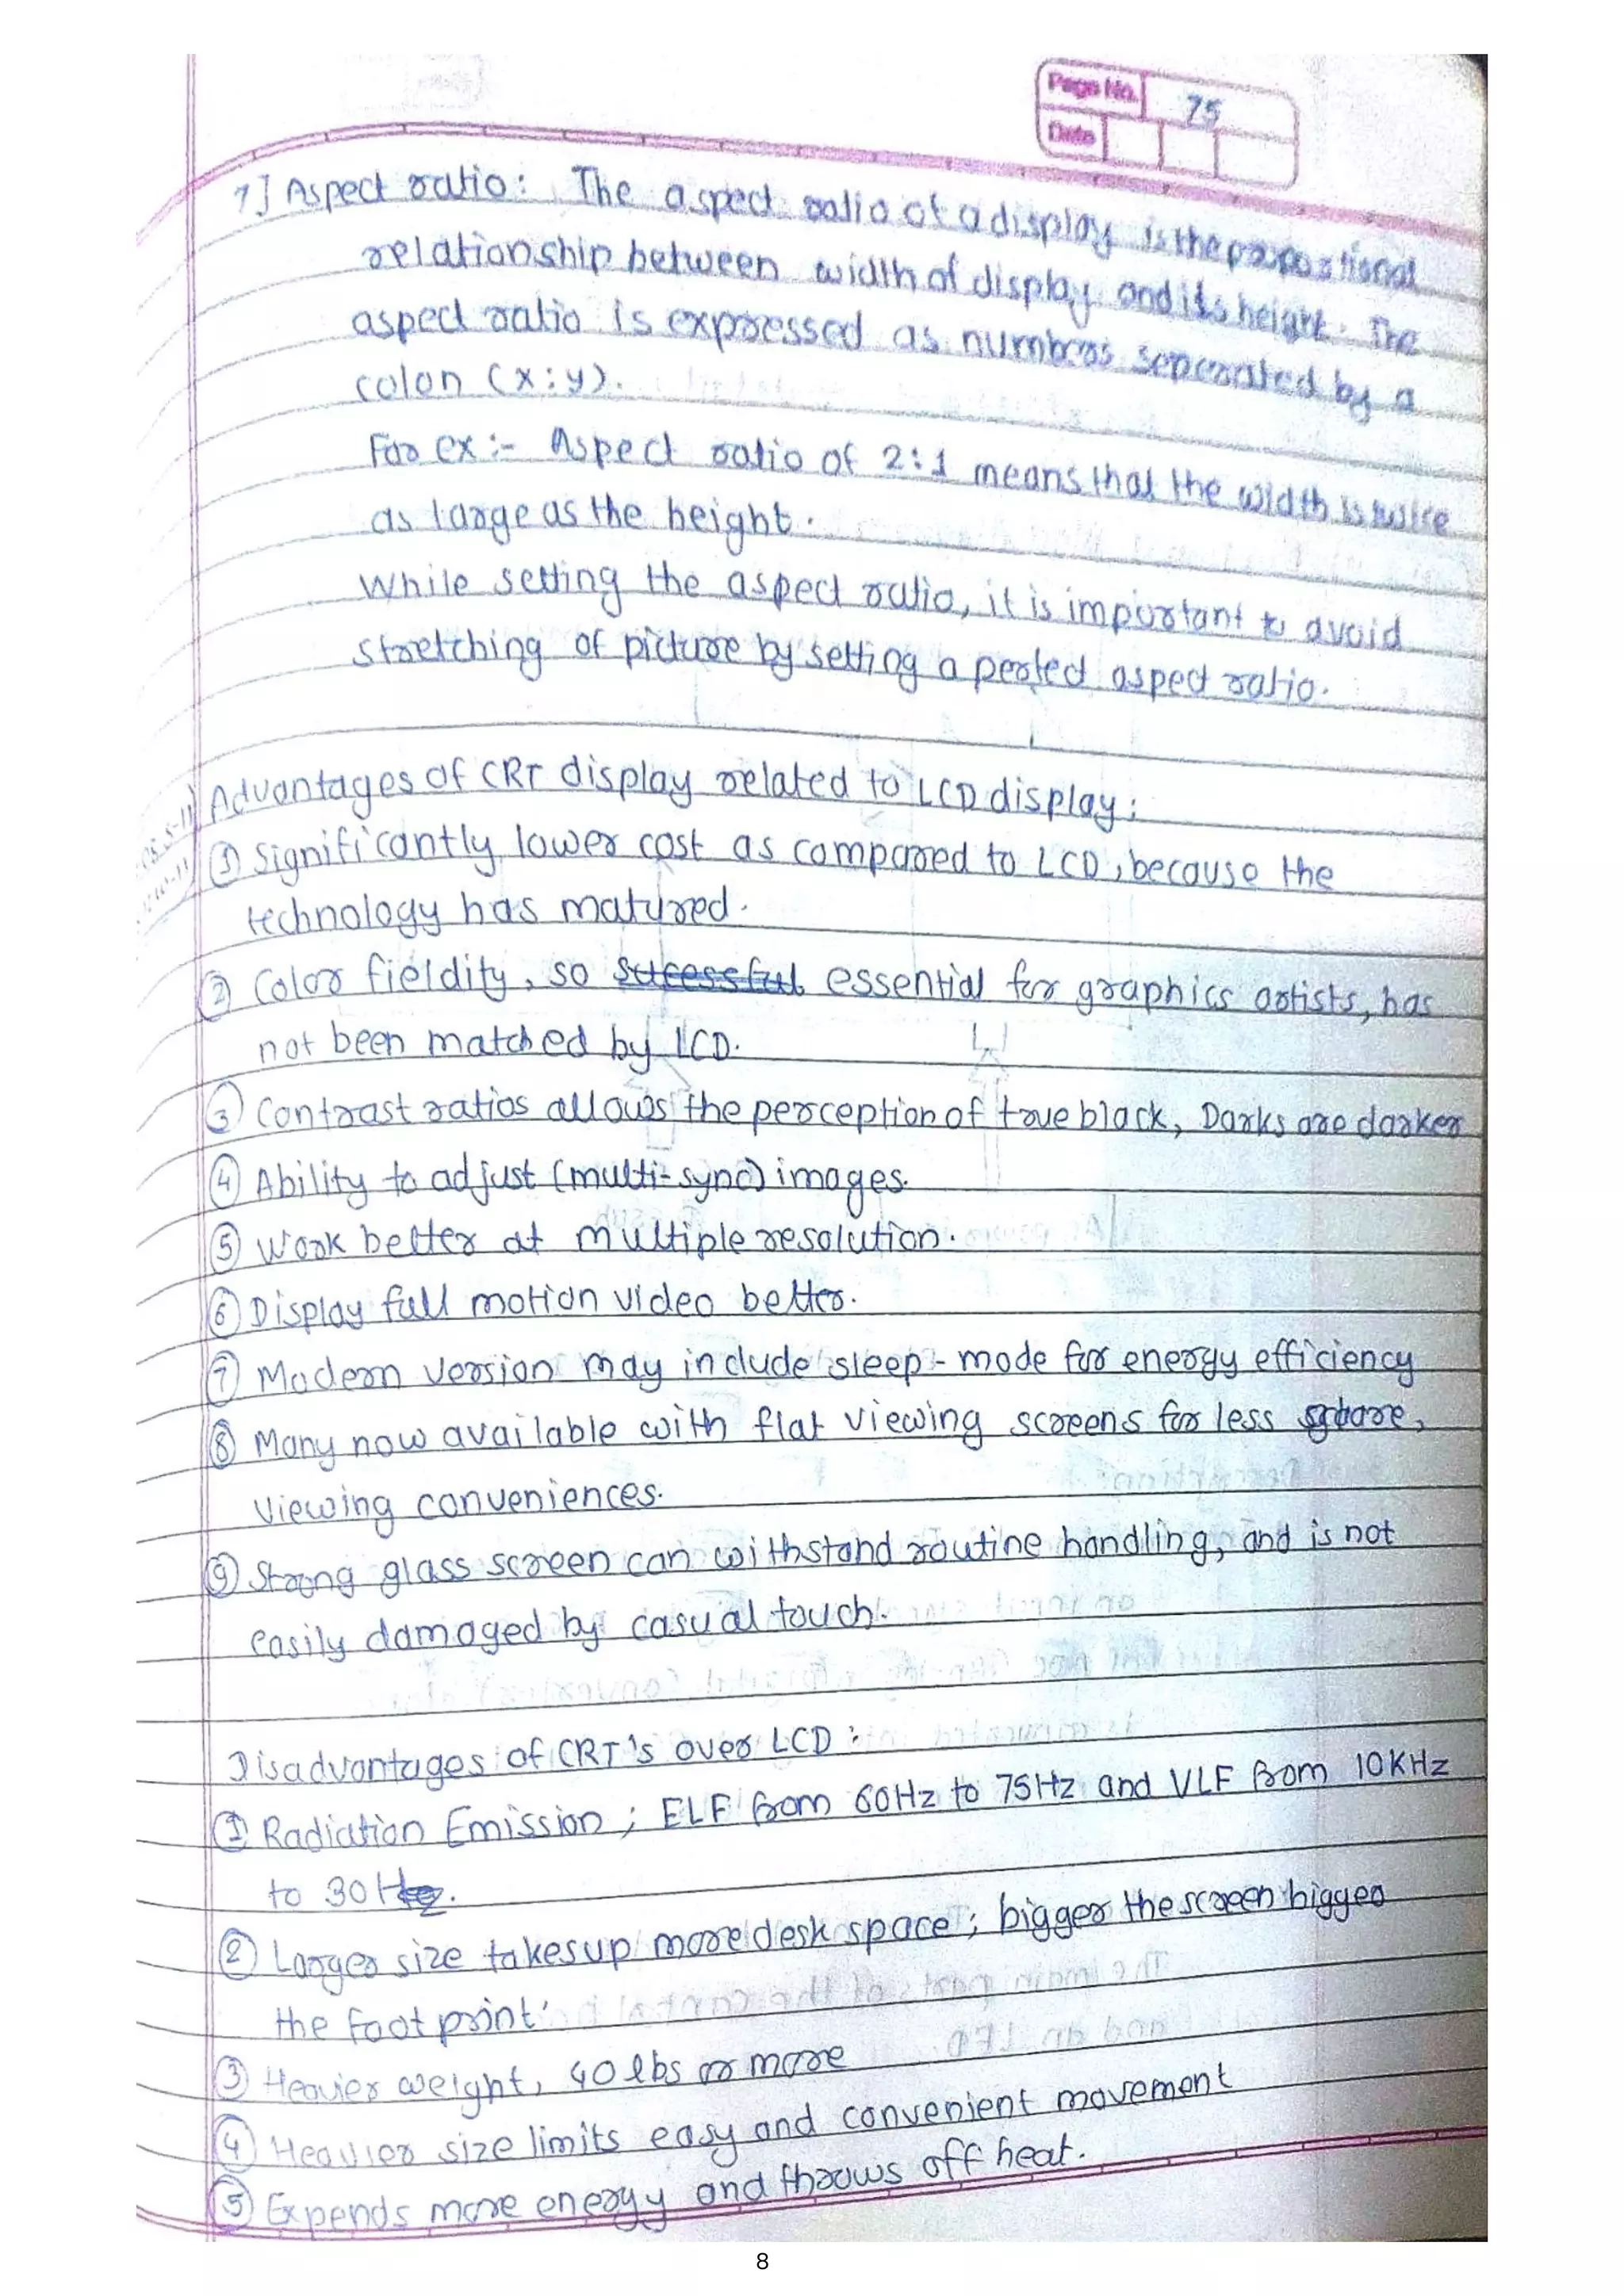 Page No. 75
Date
7] Aspect ratio: The aspect ratio of a display is the proportional
relationship between width of display and its height. The
aspect ratio is expressed as numbers seperated by a
colon (x:y).
For ex:- Aspect ratio of 2:1 means that the width is twice
as large as the height.
While setting the aspect ratio, it is important to avoid
stretching of picture by setting a perfect aspect ratio.
Advantages of CRT display related to LCD display:
① Significantly lower cost as compared to LCD, because the
technology has matured.
② Color fieldity, so essential for graphics artists, has
not been matched by LCD.
③ Contrast ratios allows the perception of true black, Darks are darker
④ Ability to adjust (multi-sync) images.
⑤ Work better at multiple resolution.
⑥ Display full motion video better.
⑦ Modern version may include sleep-mode for energy efficiency
⑧ Many now available with flat viewing screens for less
viewing conveniences.
⑨ Strong glass screen can withstand routine handling, and is not
easily damaged by casual touch.
Disadvantages of CRT's over LCD:
① Radiation Emission; ELF from 60Hz to 75Hz and VLF from 10KHz
to 30
② Larger size takes up more desk space; bigger the screen bigger
the foot print.
③ Heavier weight, 40 lbs or more
④ Heavier size limits easy and convenient movement
⑤ Expends more energy and throws off heat.
8